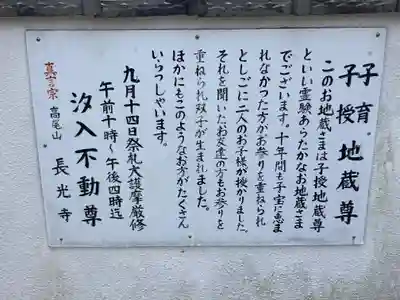 子育
子授 地蔵尊
このお地蔵さまは子授地蔵尊
といい霊験あらたかなお地蔵さま
でございます。十年間も子宝に恵ま
れなかつた方がお参りを重ねられ
としごに二人のお子様が授かりました。
それを聞いたお友達の方もお参りを
重ねられ双つ子が生まれました。
ほかにもこのようなお方がたくさん
いらつしやいます。
九月十四日祭礼大護摩厳修
午前十時〜午後四時迄
汐入不動尊
真言宗 高亀山 長光寺